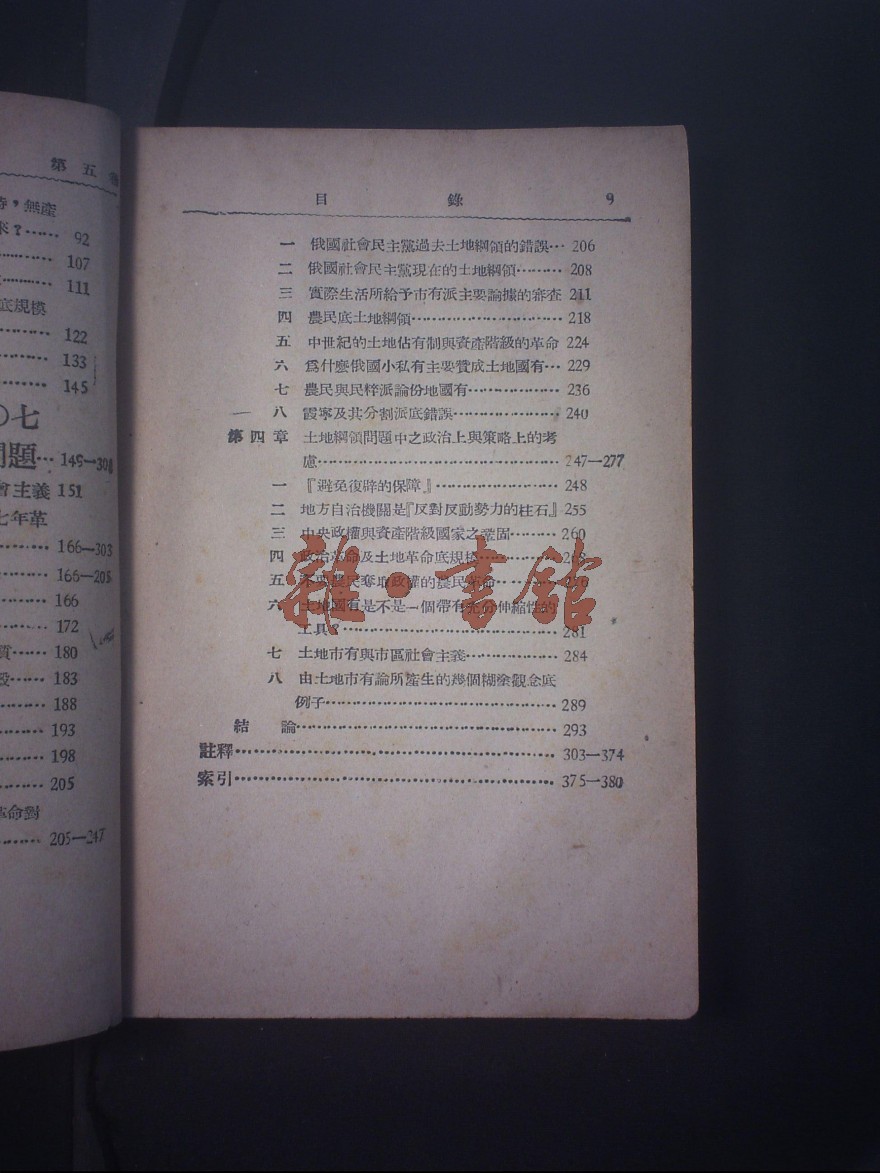 第五
時，無產
來？…… 92
107
111
底規模
122
133
145
〇七
問題… 149—303
會主義 151
七年革
166—303
166—205
166
172
質…… 180
183
188
193
198
205
革命對
205—247
目 錄 9
一 俄國社會民主黨過去土地綱領的錯誤… 206
二 俄國社會民主黨現在的土地綱領……… 208
三 實際生活所給予市有派主要論據的審查 211
四 農民底土地綱領…………………… 218
五 中世紀的土地佔有制與資產階級的革命 224
六 爲什麼俄國小私有主要贊成土地國有… 229
七 農民與民粹派論份地國有…………… 236
八 霞寧及其分割派底錯誤……………… 240
第四章 土地綱領問題中之政治上與策略上的考
慮…………………………………… 247—277
一 『避免復辟的保障』………………… 248
二 地方自治機關是『反對反動勢力的柱石』 255
三 中央政權與資產階級國家之鞏固…… 260
四 政治革命及土地革命底規模………
五 不要農民奪取政權的農民革命………
六 土地國有是不是一個帶有充分伸縮性的
工具？……………………………… 281
七 土地市有與市區社會主義…………… 284
八 由土地市有論所產生的幾個糊塗觀念底
例子………………………………… 289
結 論…………………………………… 293
註釋……………………………………… 303—374
索引……………………………………… 375—380
雜·書館